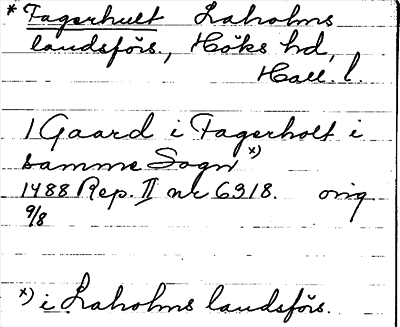 * Fagerhult Laholms
landsförs., Höks hd,
Hall. l.
1 Gaard i Fagerholt i
samme Sogn x)
1488 Rep. II nr 6318. orig
9/8
x) i Laholms landsförs.